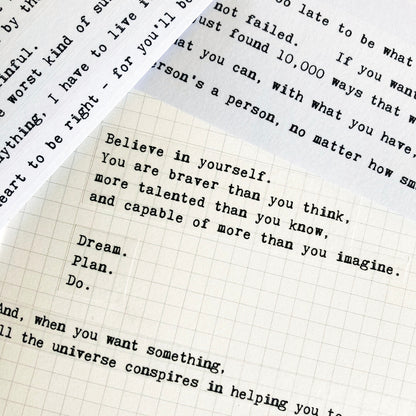 by th
inful.
e worst kind of su
nything, I have to live i
heart to be right - for you'll b
oo late to be what
not failed. If you want
just found 10,000 ways that w
hat you can, with what you have,
erson's a person, no matter how sm
Believe in yourself.
You are braver than you think,
more talented than you know,
and capable of more than you imagine.
Dream.
Plan.
Do.
And, when you want something,
ll the universe conspires in helping you to